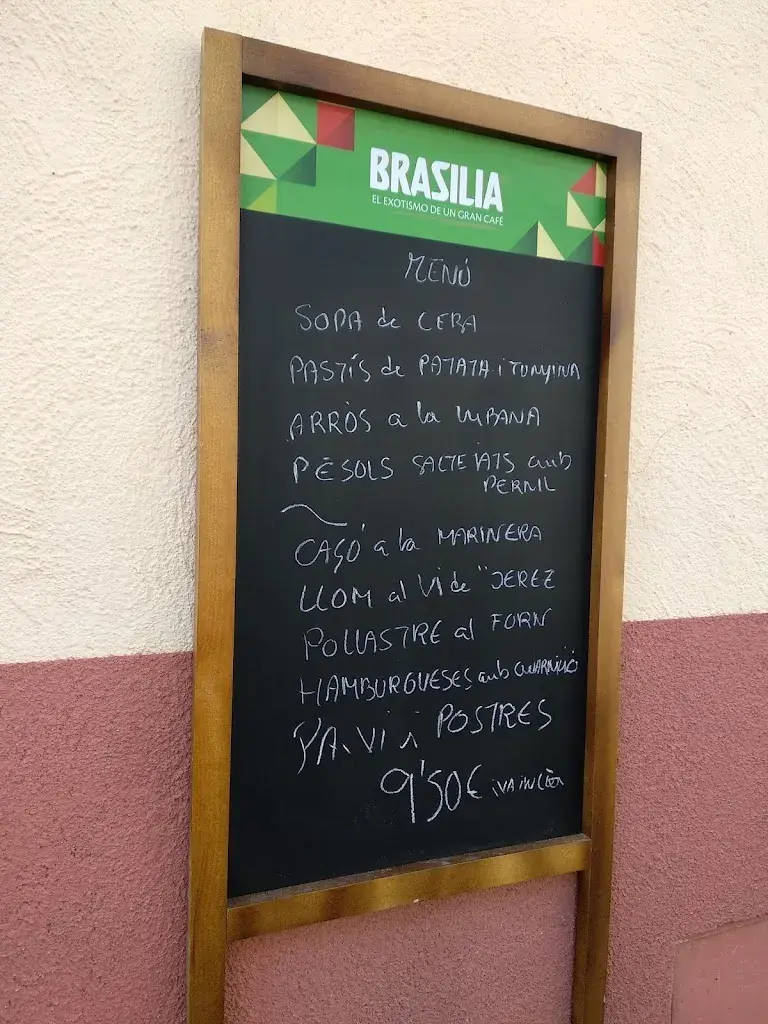 BRASILIA
EL EXOTISMO DE UN GRAN CAFÉ
MENÚ
SOPA de CEBA
PASTÍS de PATATA i TONYINA
ARRÒS a la CUBANA
PÈSOLS SALTEJATS amb
PERNIL
CAÇÓ a la MARINERA
LLOM al Vi de "JEREZ
POLLASTRE al FORN
HAMBURGUESES amb GUARNICIÓ
PA, VI i POSTRES
9'50€ IVA INCLÒS